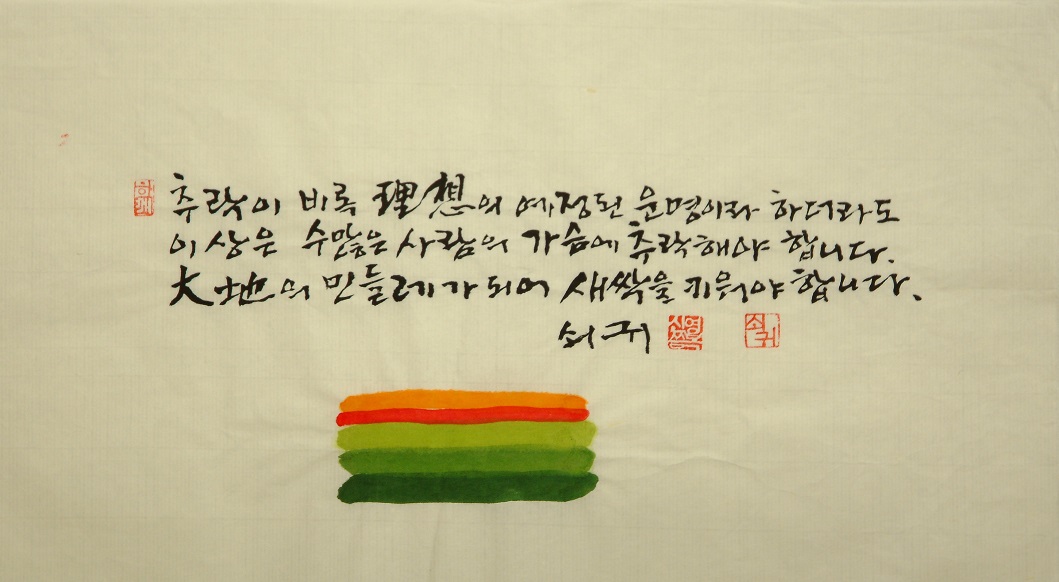 추락이 비록 理想의 예정된 운명이라 하더라도
이상은 수많은 사람의 가슴에 추락해야 합니다.
大地의 민들레가 되어 새싹을 키워야 합니다.
쇠귀 쇠귀